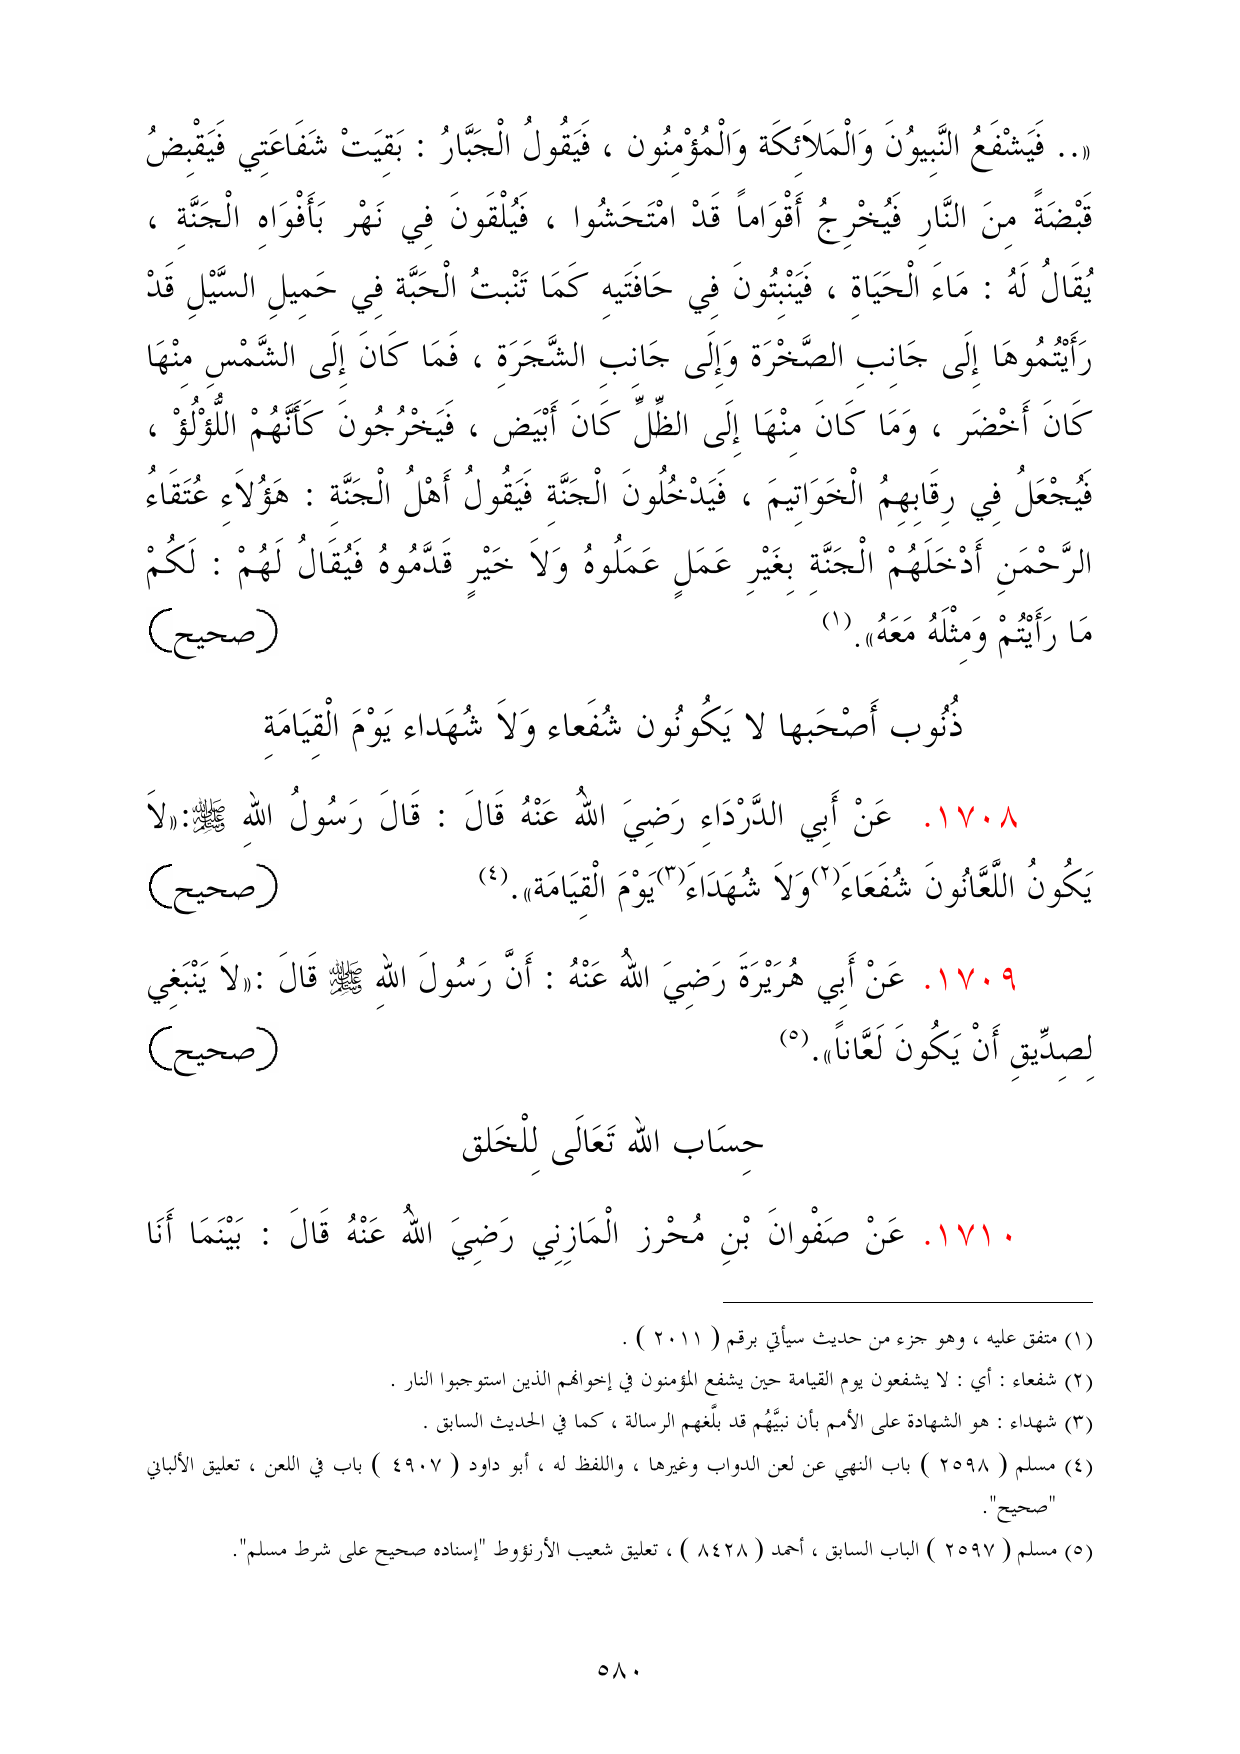 «.. فَيَشْفَعُ النَّبِيوُنَ وَالْمَلاَئِكَة وَالْمُؤْمِنُون ، فَيَقُولُ الْجَبَّارُ : بَقِيَتْ شَفَاعَتِي فَيَقْبِضُ
قَبْضَةً مِنَ النَّارِ فَيُخْرِجُ أَقْوَاماً قَدْ امْتَحَشُوا ، فَيُلْقَونَ فِي نَهْر بَأَفْوَاهِ الْجَنَّةِ ،
يُقَالُ لَهُ : مَاءَ الْحَيَاةِ ، فَيَنْبِتُونَ فِي حَافَتَيهِ كَمَا تَنْبتُ الْحَبَّة فِي حَمِيلِ السَّيْلِ قَدْ
رَأَيْتُمُوهَا إِلَى جَانِبِ الصَّخْرَةِ وَإِلَى جَانِبِ الشَّجَرَةِ ، فَمَا كَانَ إِلَى الشَّمْسِ مِنْهَا
كَانَ أَخْضَر ، وَمَا كَانَ مِنْهَا إِلَى الظِّلِّ كَانَ أَبْيَض ، فَيَخْرُجُونَ كَأَنَّهُمْ اللُّؤْلُؤْ ،
فَيُجْعَلُ فِي رِقَابِهِمُ الْخَوَاتِيمَ ، فَيَدْخُلُونَ الْجَنَّةِ فَيَقُولُ أَهْلُ الْجَنَّةِ : هَؤُلاَءِ عُتَقَاءُ
الرَّحْمَنِ أَدْخَلَهُمْ الْجَنَّةِ بِغَيْرِ عَمَلٍ عَمَلُوهُ وَلاَ خَيْرٍ قَدَّمُوهُ فَيُقَالُ لَهُمْ : لَكُمْ
مَا رَأَيْتُمْ وَمِثْلَهُ مَعَهُ».(١) (صحيح)
ذُنُوب أَصْحَبها لا يَكُونُون شُفَعاء وَلاَ شُهَداء يَوْمَ الْقِيَامَةِ
١٧٠٨. عَنْ أَبِي الدَّرْدَاءِ رَضِيَ اللهُ عَنْهُ قَالَ : قَالَ رَسُولُ اللهِ ﷺ:«لاَ
يَكُونُ اللَّعَّانُونَ شُفَعَاءَ(٢)وَلاَ شُهَدَاءَ(٣)يَوْمَ الْقِيَامَة».(٤) (صحيح)
١٧٠٩. عَنْ أَبِي هُرَيْرَةَ رَضِيَ اللهُ عَنْهُ : أَنَّ رَسُولَ اللهِ ﷺ قَالَ :«لاَ يَنْبَغِي
لِصِدِّيقِ أَنْ يَكُونَ لَعَّاناً».(٥) (صحيح)
حِسَاب الله تَعَالَى لِلْخَلق
١٧١٠. عَنْ صَفْوانَ بْنِ مُحْرز الْمَازِنِي رَضِيَ اللهُ عَنْهُ قَالَ : بَيْنَمَا أَنَا
(١) متفق عليه ، وهو جزء من حديث سيأتي برقم ( ٢٠١١ ) .
(٢) شفعاء : أي : لا يشفعون يوم القيامة حين يشفع المؤمنون في إخوانهم الذين استوجبوا النار .
(٣) شهداء : هو الشهادة على الأمم بأن نبيَّهُم قد بلَّغهم الرسالة ، كما في الحديث السابق .
(٤) مسلم ( ٢٥٩٨ ) باب النهي عن لعن الدواب وغيرها ، واللفظ له ، أبو داود ( ٤٩٠٧ ) باب في اللعن ، تعليق الألباني
"صحيح".
(٥) مسلم ( ٢٥٩٧ ) الباب السابق ، أحمد ( ٨٤٢٨ ) ، تعليق شعيب الأرنؤوط "إسناده صحيح على شرط مسلم".
٥٨٠